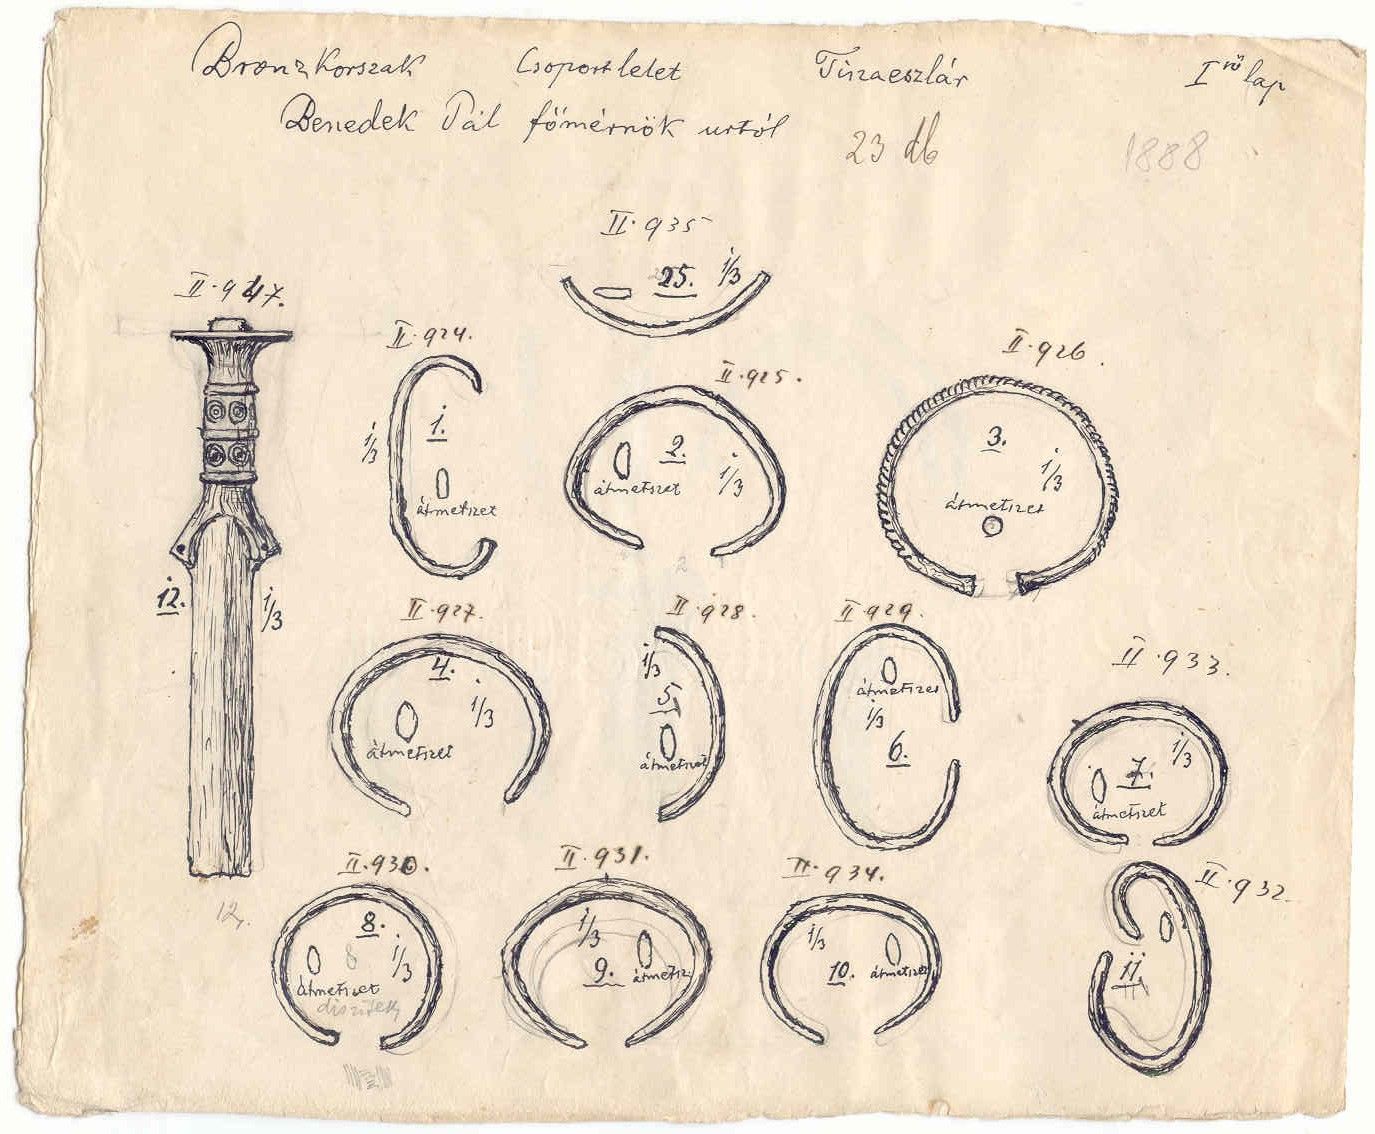 Bronzkorszak Csoportlelet Tiszaeszlár I ső lap
Benedek Pál főmérnök urtól
23 db
1888
II. 935
25. 1/3
II. 947.
12. 1/3
12.
II. 924.
1.
1/3
átmetszet
II. 925.
2.
1/3
átmetszet
2
II. 926.
3.
1/3
átmetszet
II. 927.
4.
1/3
átmetszet
II. 928.
1/3
5
átmetszet
II. 929.
átmetszet
1/3
6.
II. 933.
1/3
7.
átmetszet
II. 930.
8.
8
1/3
átmetszet
II. 931.
1/3
9.
átmetsz.
II. 934.
1/3
10.
átmetszet
II. 932.
11.